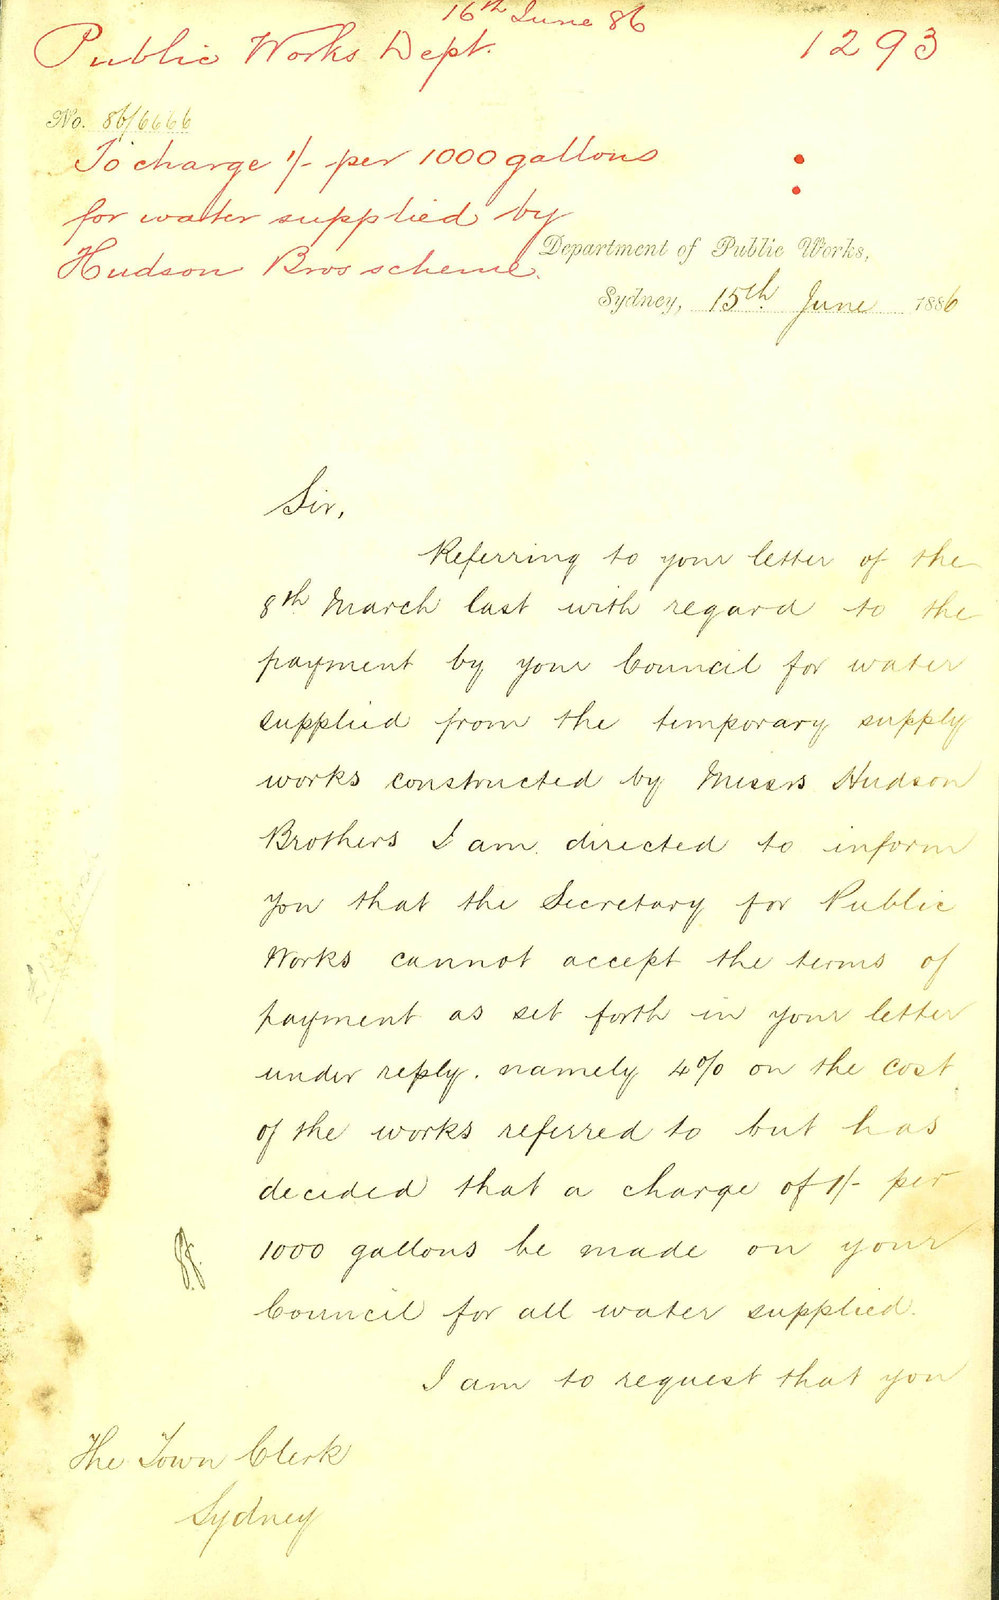 16th June 86
Public Works Dept. 1293
No. 86/6666
To charge 1/- per 1000 gallons
for water supplied by
Hudson Bros scheme.
Department of Public Works,
Sydney, 15th June 1886
Sir,
Referring to your letter of the
8th March last with regard to the
payment by your Council for water
supplied from the temporary supply
works constructed by Messrs Hudson
Brothers I am directed to inform
you that the Secretary for Public
Works cannot accept the terms of
payment as set forth in your letter
under reply. namely 4% on the cost
of the works referred to but has
decided that a charge of 1/- per
1000 gallons be made on your
Council for all water supplied.
I am to request that you
The Town Clerk
Sydney